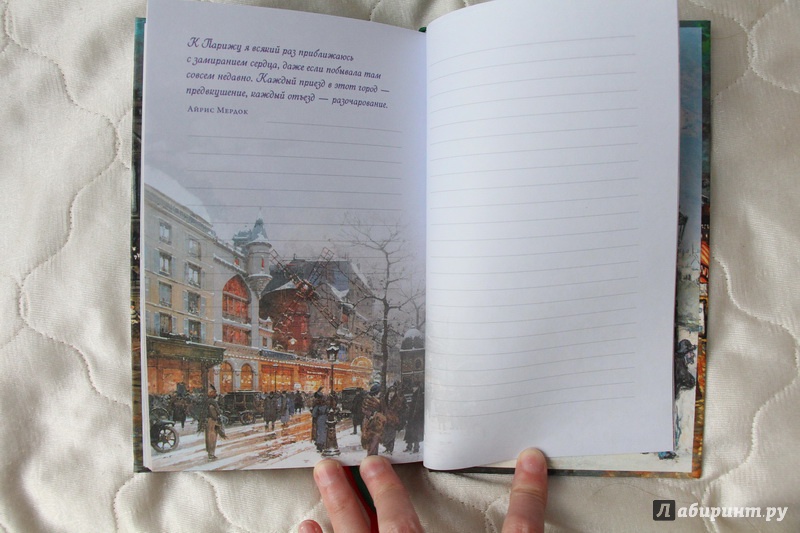 К Парижу я всякий раз приближаюсь
с замиранием сердца, даже если побывала там
совсем недавно. Каждый приезд в этот город —
предвкушение, каждый отъезд — разочарование.
Айрис Мердок
Лабиринт.ру